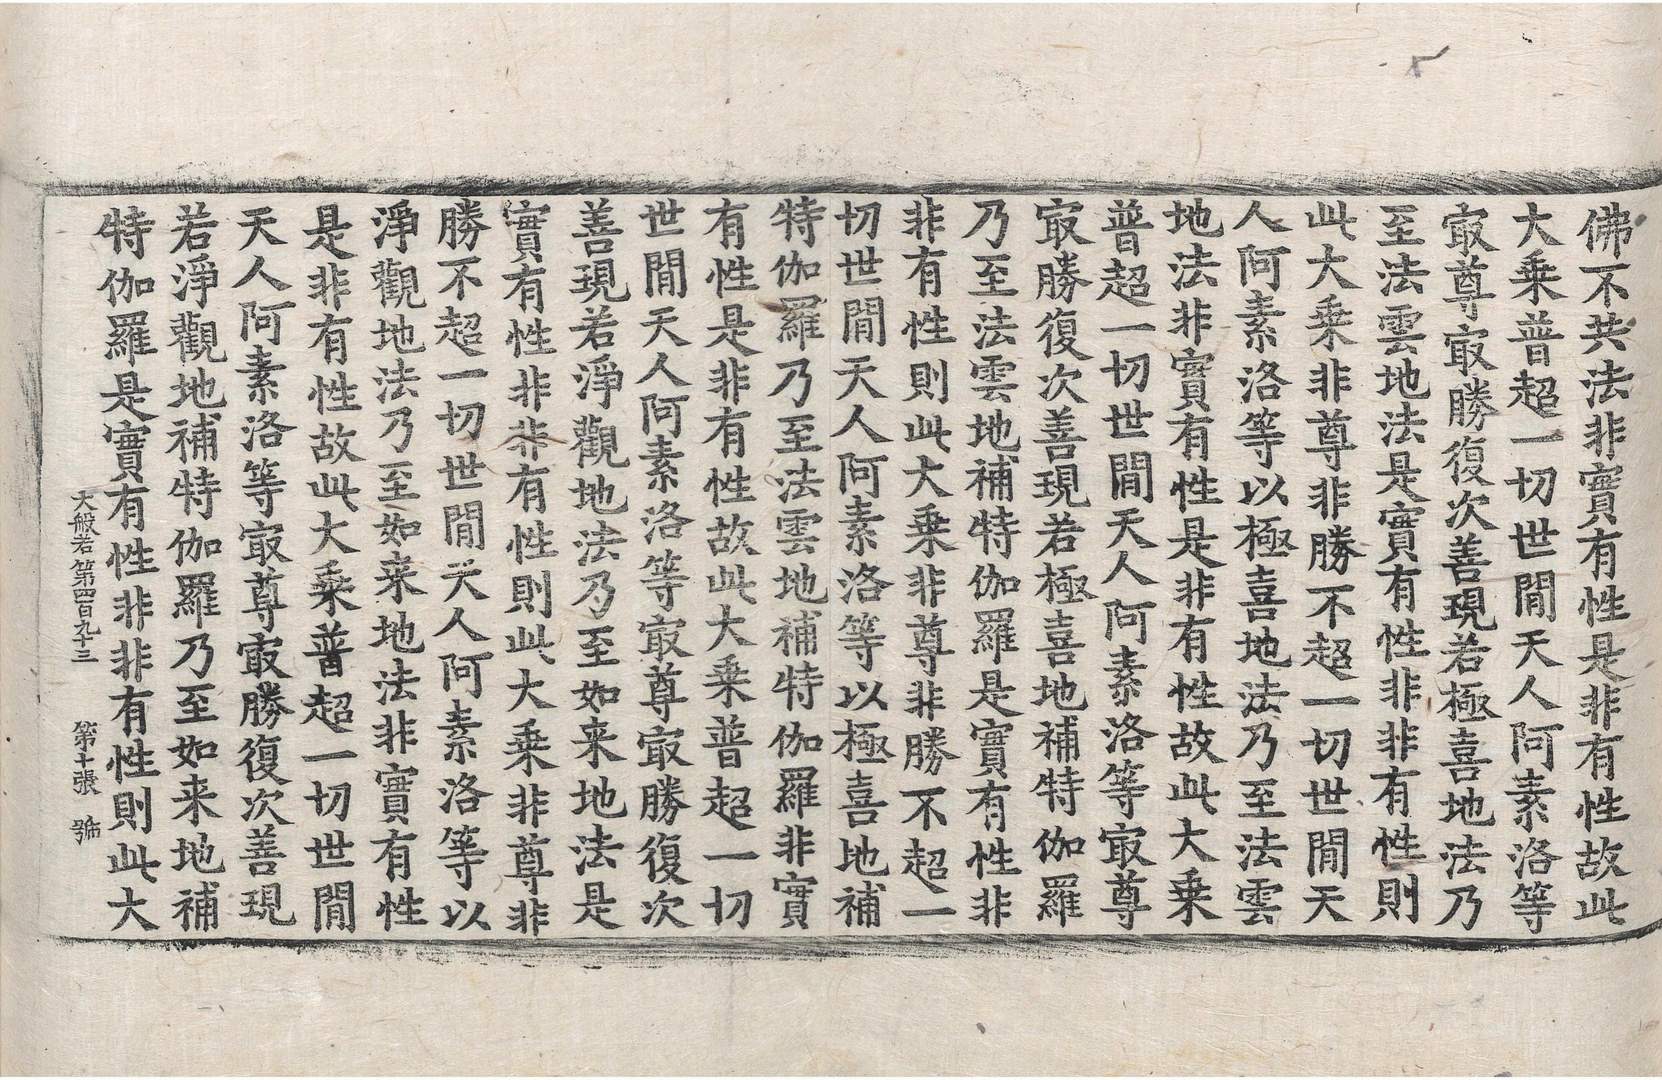 佛不共法非實有性是非有性故此
大乗普超一切世閒天人阿素洛等
冣尊冣勝復次善現若極喜地法乃
至法雲地法是實有性非非有性則
此大乗非尊非勝不超一切世閒天
人阿素洛等以極喜地法乃至法雲
地法非實有性是非有性故此大乗
普超一切世閒天人阿素洛等冣尊
冣勝復次善現若極喜地補特伽羅
乃至法雲地補特伽羅是實有性非
非有性則此大乗非尊非勝不超一
切世閒天人阿素洛等以極喜地補
特伽羅乃至法雲地補特伽羅非實
有性是非有性故此大乗普超一切
世閒天人阿素洛等冣尊冣勝復次
善現若淨觀地法乃至如来地法是
實有性非非有性則此大乗非尊非
勝不超一切世閒天人阿素洛等以
淨觀地法乃至如来地法非實有性
是非有性故此大乗普超一切世閒
天人阿素洛等冣尊冣勝復次善現
若淨觀地補特伽羅乃至如来地補
特伽羅是實有性非非有性則此大
大般若第四百九十三 第十張 號